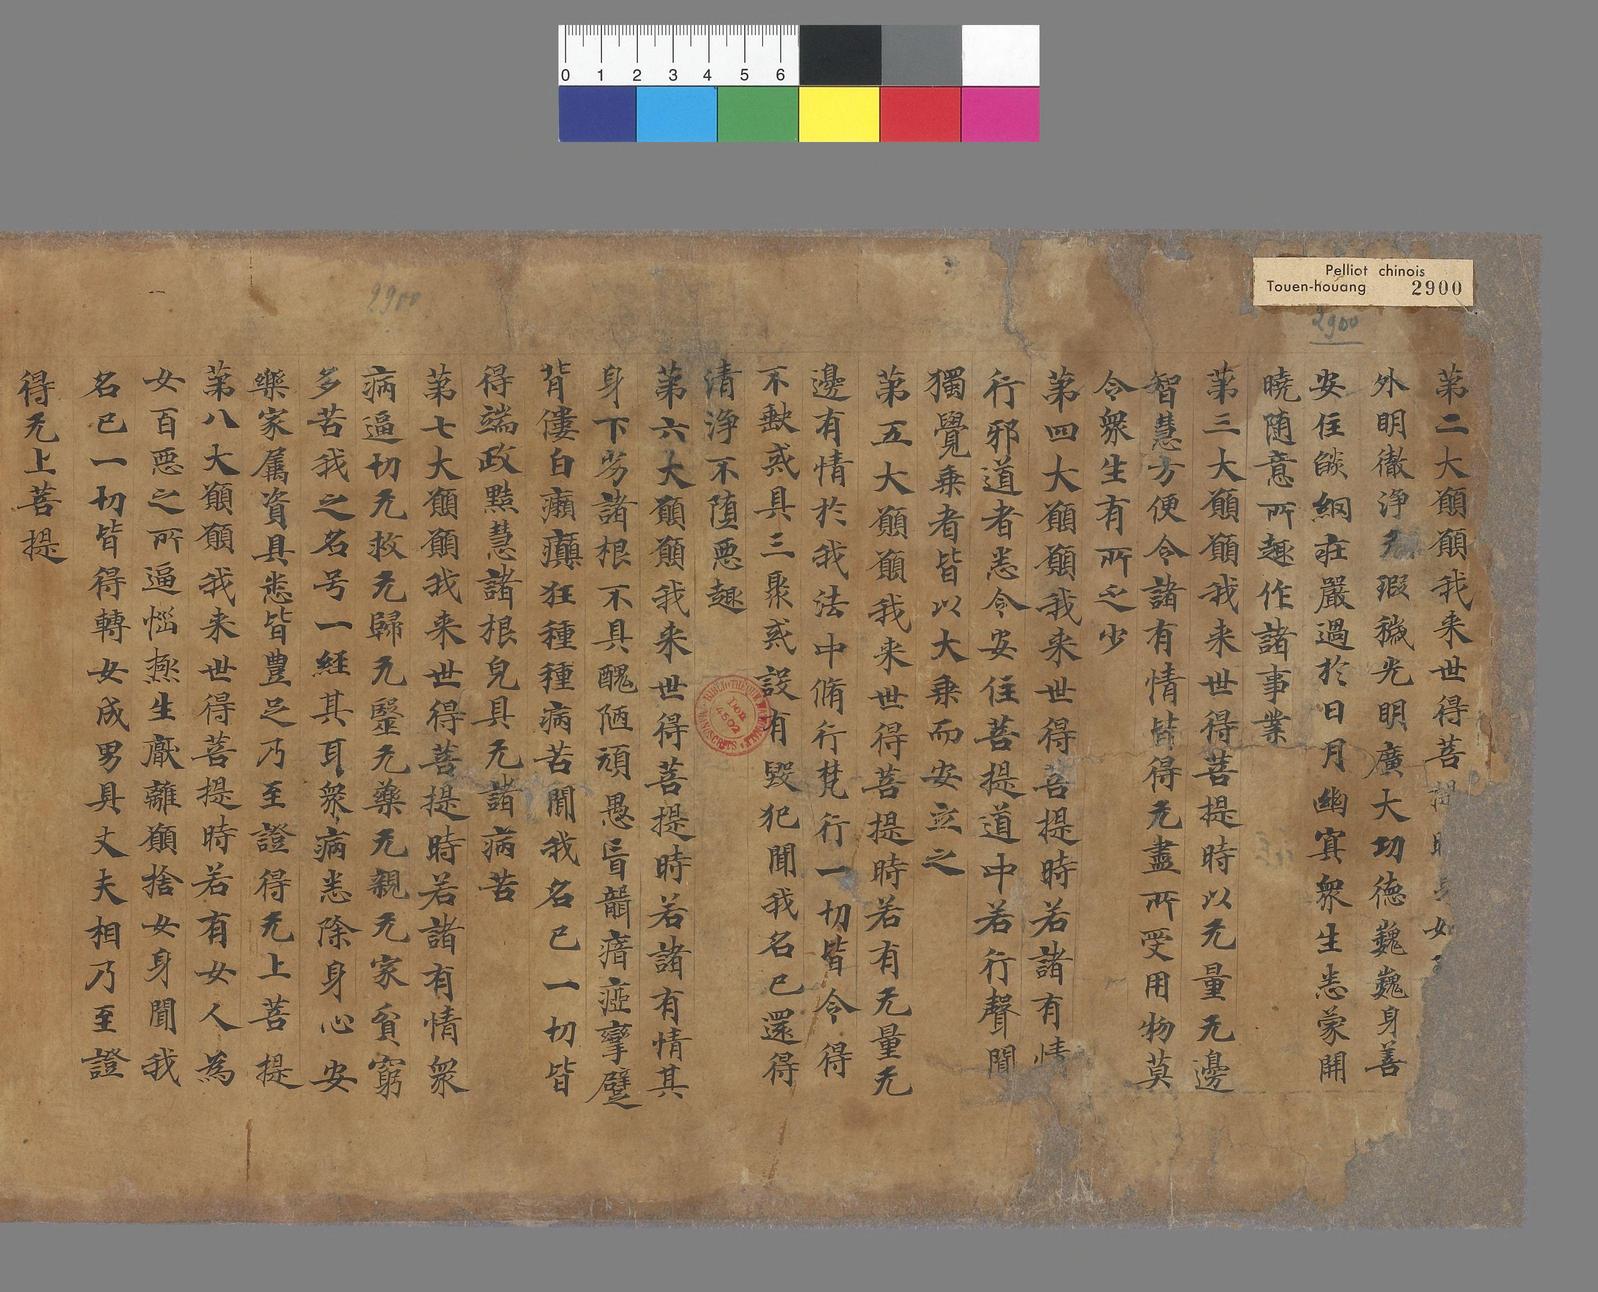 Pelliot chinois
Touen-houang 2900
2900
2900
0 1 2 3 4 5 6
苐二大願願我来世得菩提時身如
外明徹淨无瑕穢光明廣大功德巍巍身善
安住燄綱莊嚴過於日月幽冥衆生悉蒙開
曉随意所趣作諸事業
苐三大願願我来世得菩提時以无量无邊
智慧方便令諸有情皆得无盡所受用物莫
令衆生有所乏少
苐四大願願我来世得菩提時若諸有情
行邪道者悉令安住菩提道中若行聲聞
獨覺乗者皆以大乗而安立之
苐五大願願我来世得菩提時若有无量无
邊有情於我法中脩行梵行一切皆令得
不缺戒具三聚戒設有毀犯聞我名已還得
清淨不墮惡趣
苐六大願願我来世得菩提時若諸有情其
身下劣諸根不具醜陋頑愚盲聾瘖瘂攣躄
背僂白癩癲狂種種病苦聞我名已一切皆
得端政黠慧諸根皃具无諸病苦
苐七大願願我来世得菩提時若諸有情衆
病逼切无救无歸无毉无藥无親无家貧窮
多苦我之名号一経其耳衆病悉除身心安
樂家属資具悉皆豐足乃至證得无上菩提
苐八大願願我来世得菩提時若有女人為
女百惡之所逼惱極生厭離願捨女身聞我
名已一切皆得轉女成男具丈夫相乃至證
得无上菩提